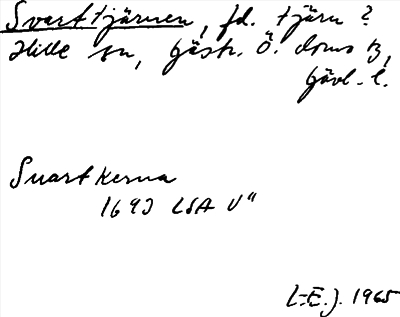 Svarttjärnen, fd. tjärn?
Hille sn, Gästr. Ö. doms tz,
Gävl. l.
Suart kerna
1693 LSA V"
L-E.J. 1965